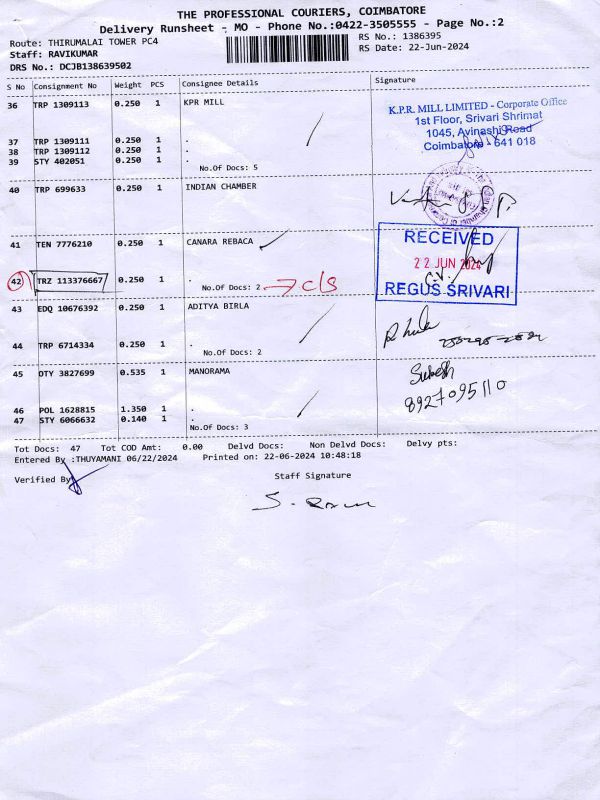 THE PROFESSIONAL COURIERS, COIMBATORE
Delivery Runsheet - MO - Phone No.:0422-3505555 - Page No.:2
Route: THIRUMALAI TOWER PC4
RS No.: 1386395
Staff: RAVIKUMAR
RS Date: 22-Jun-2024
DRS No.: DCJB138639502
S No Consignment No Weight PCS Consignee Details Signature
36 TRP 1309113 0.250 1 KPR MILL
K.P.R. MILL LIMITED - Corporate Office
1st Floor, Srivari Shrimat
1045, Avinashi Road
Coimbatore - 641 018
37 TRP 1309111 0.250 1 .
38 TRP 1309112 0.250 1 .
39 STY 402051 0.250 1 .
No.Of Docs: 5
40 TRP 699633 0.250 1 INDIAN CHAMBER
41 TEN 7776210 0.250 1 CANARA REBACA
RECEIVED
22 JUN 2024
REGUS SRIVARI
42 TRZ 113376667 0.250 1 .
No.Of Docs: 2 → c/s
43 EDQ 10676392 0.250 1 ADITYA BIRLA
44 TRP 6714334 0.250 1 .
No.Of Docs: 2
45 DTY 3827699 0.535 1 MANORAMA
Suresh
8927095110
46 POL 1628815 1.350 1 .
47 STY 6066632 0.140 1 .
No.Of Docs: 3
Tot Docs: 47 Tot COD Amt: 0.00 Delvd Docs: Non Delvd Docs: Delvy pts:
Entered By :THUYAMANI 06/22/2024 Printed on: 22-06-2024 10:48:18
Verified By
Staff Signature